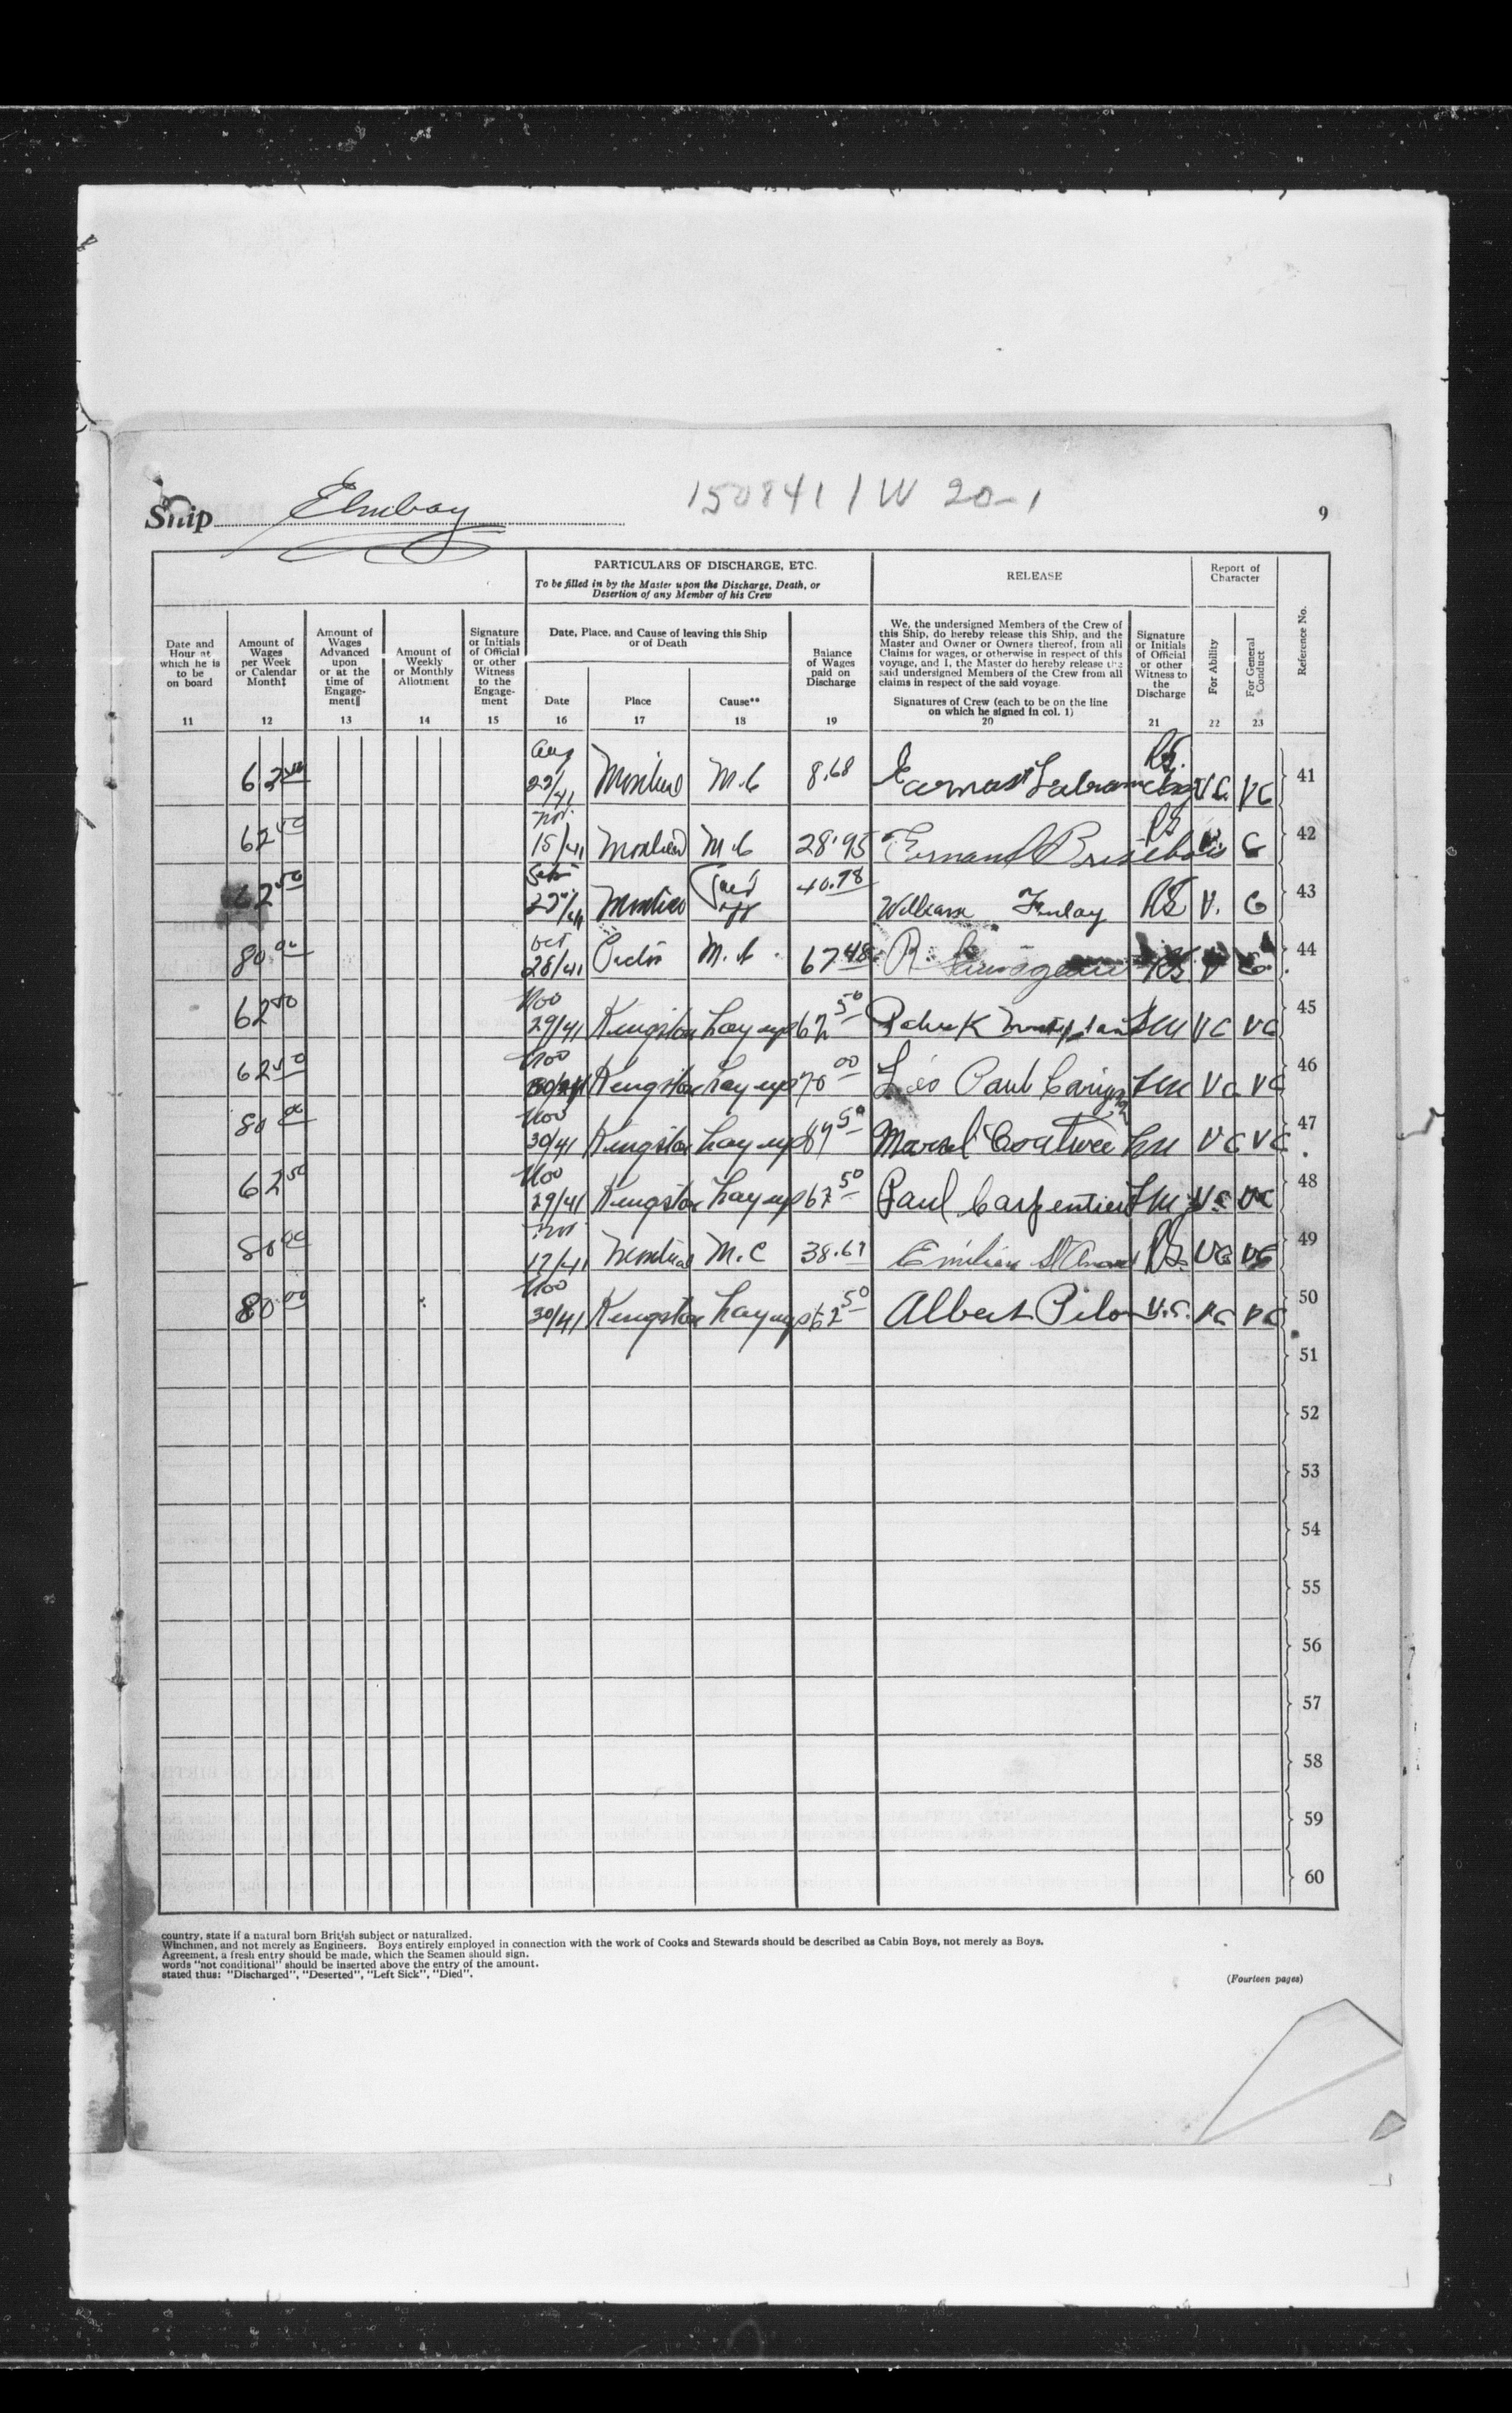 Ship Elmbay 150841 1 W 20-1 9
PARTICULARS OF DISCHARGE, ETC.
To be filled in by the Master upon the Discharge, Death, or
Desertion of any Member of his Crew
RELEASE
Report of
Character
Reference No.
Date and
Hour at
which he is
to be
on board
11
Amount of
Wages
per Week
or Calendar
Month‡
12
Amount of
Wages
Advanced
upon
or at the
time of
Engage-
ment‖
13
Amount of
Weekly
or Monthly
Allotment
14
Signature
or Initials
of Official
or other
Witness
to the
Engage-
ment
15
Date, Place, and Cause of leaving this Ship
or of Death
Date
16
Place
17
Cause**
18
Balance
of Wages
paid on
Discharge
19
We, the undersigned Members of the Crew of
this Ship, do hereby release this Ship, and the
Master and Owner or Owners thereof, from all
Claims for wages, or otherwise in respect of this
voyage, and I, the Master do hereby release the
said undersigned Members of the Crew from all
claims in respect of the said voyage.
Signatures of Crew (each to be on the line
on which he signed in col. 1)
20
Signature
or Initials
of Official
or other
Witness to
the
Discharge
21
For Ability
22
For General
Conduct
23
62 50 Aug 22/41 Montreal M.C 8.68 V.G. VG 41
62 50 Nov. 15/41 Montreal M.C 28.95 Fernand Brisebois V. G 42
62 50 Sept 40.78 William Finlay RS V. G 43
80 00 Oct 28/41 M.C. 67.48 R. RS V G 44
62 50 Nov 29/41 Kingston Lay up 62 50 VG VG 45
62 50 Nov 30/41 Kingston Lay up 70 00 Léo Paul VG VG 46
80 00 Nov 30/41 Kingston Lay up 50 VG VG 47
62 50 Nov 29/41 Kingston Lay up 62 50 Paul Carpentier VG VG 48
80 00 Nov 17/41 Montreal M.C 38.67 Emilien St Amand RS. VG VG 49
80 00 Nov 30/41 Kingston Lay up 62 50 Albert Pilon VG VG 50
51
52
53
54
55
56
57
58
59
60
country, state if a natural born British subject or naturalized.
Winchmen, and not merely as Engineers. Boys entirely employed in connection with the work of Cooks and Stewards should be described as Cabin Boys, not merely as Boys.
Agreement, a fresh entry should be made, which the Seamen should sign.
words "not conditional" should be inserted above the entry of the amount.
stated thus: "Discharged", "Deserted", "Left Sick", "Died".
(Fourteen pages)